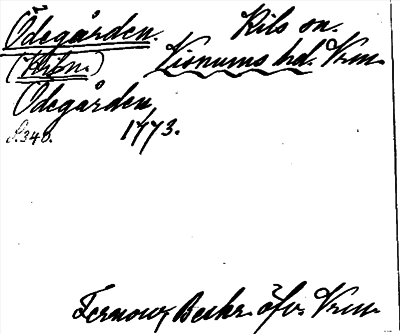 Ödegården. Kils sn.
(Hrbn.) Visnums hd. Vrm.
Ödegården
S.340. 1773.
Fernow, Beskr. öfv. Vrm.